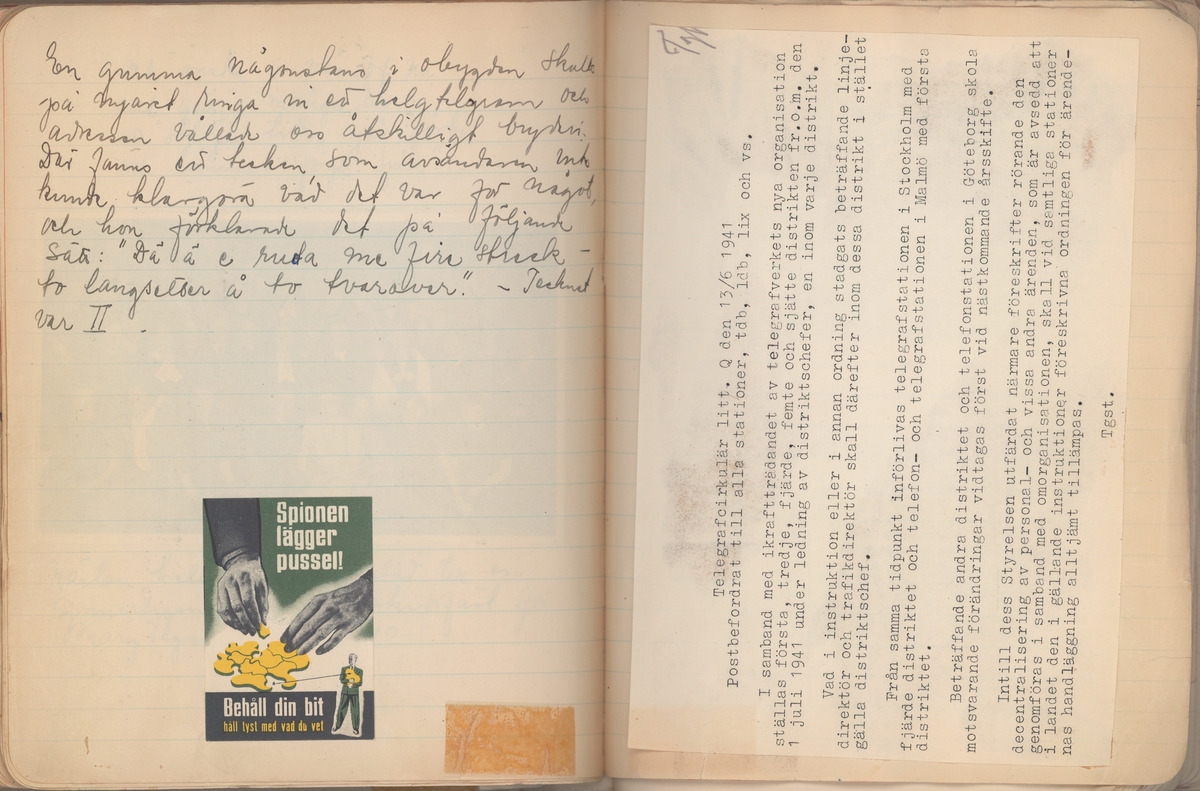 En gumma någonstans i obygden skulle
på nyåret ringa in ett helgtelegram och
adressen vållade oss åtskilligt bryderi.
Där fanns ett tecken som avsändaren inte
kunde klargöra vad det var för något,
och hon förklarade det på följande
sätt: "Dä ä e ruta me fire streck –
to langsetter å to tvaröver." – Tecknet
var II .
Spionen
lägger
pussel!
Behåll din bit
håll tyst med vad du vet
Telegrafcirkulär litt. Q den 13/6 1941
Postbefordrat till alla stationer, tdb, ldb, lix och vs.
I samband med ikraftträdandet av telegrafverkets nya organisation
ställas första, tredje, fjärde, femte och sjätte distrikten fr.o.m. den
1 juli 1941 under ledning av distriktschefer, en inom varje distrikt.
Vad i instruktion eller i annan ordning stadgats beträffande linje-
direktör och trafikdirektör skall därefter inom dessa distrikt i stället
gälla distriktschef.
Från samma tidpunkt införlivas telegrafstationen i Stockholm med
fjärde distriktet och telefon- och telegrafstationen i Malmö med första
distriktet.
Beträffande andra distriktet och telefonstationen i Göteborg skola
motsvarande förändringar vidtagas först vid nästkommande årsskifte.
Intill dess Styrelsen utfärdat närmare föreskrifter rörande den
decentralisering av personal- och vissa andra ärenden, som är avsedd att
genomföras i samband med omorganisationen, skall vid samtliga stationer
i landet den i gällande instruktioner föreskrivna ordningen för ärende-
nas handläggning alltjämt tillämpas.
Tgst.